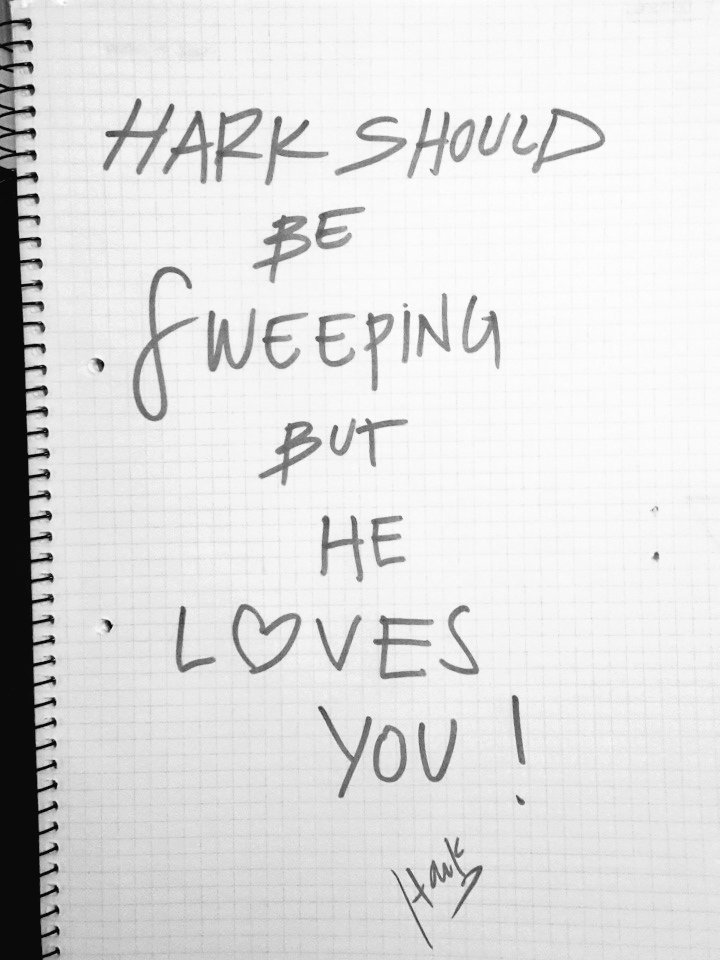 HARK SHOULD
BE
SWEEPING
BUT
HE
L♡VES
YOU !
Hark